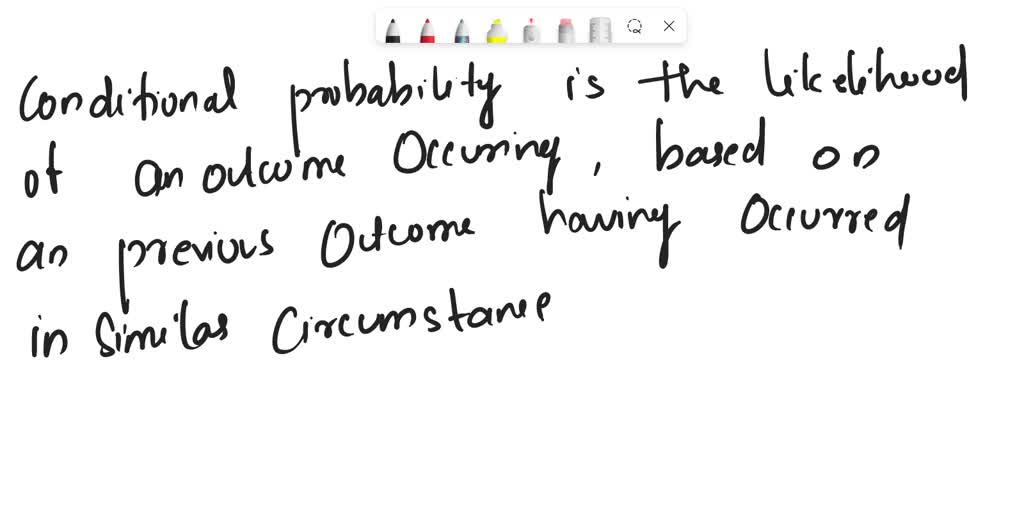 Conditional probability is the likelihood
of an outcome Occuring, based on
an previous Outcome having Occurred
in Similar Circumstance